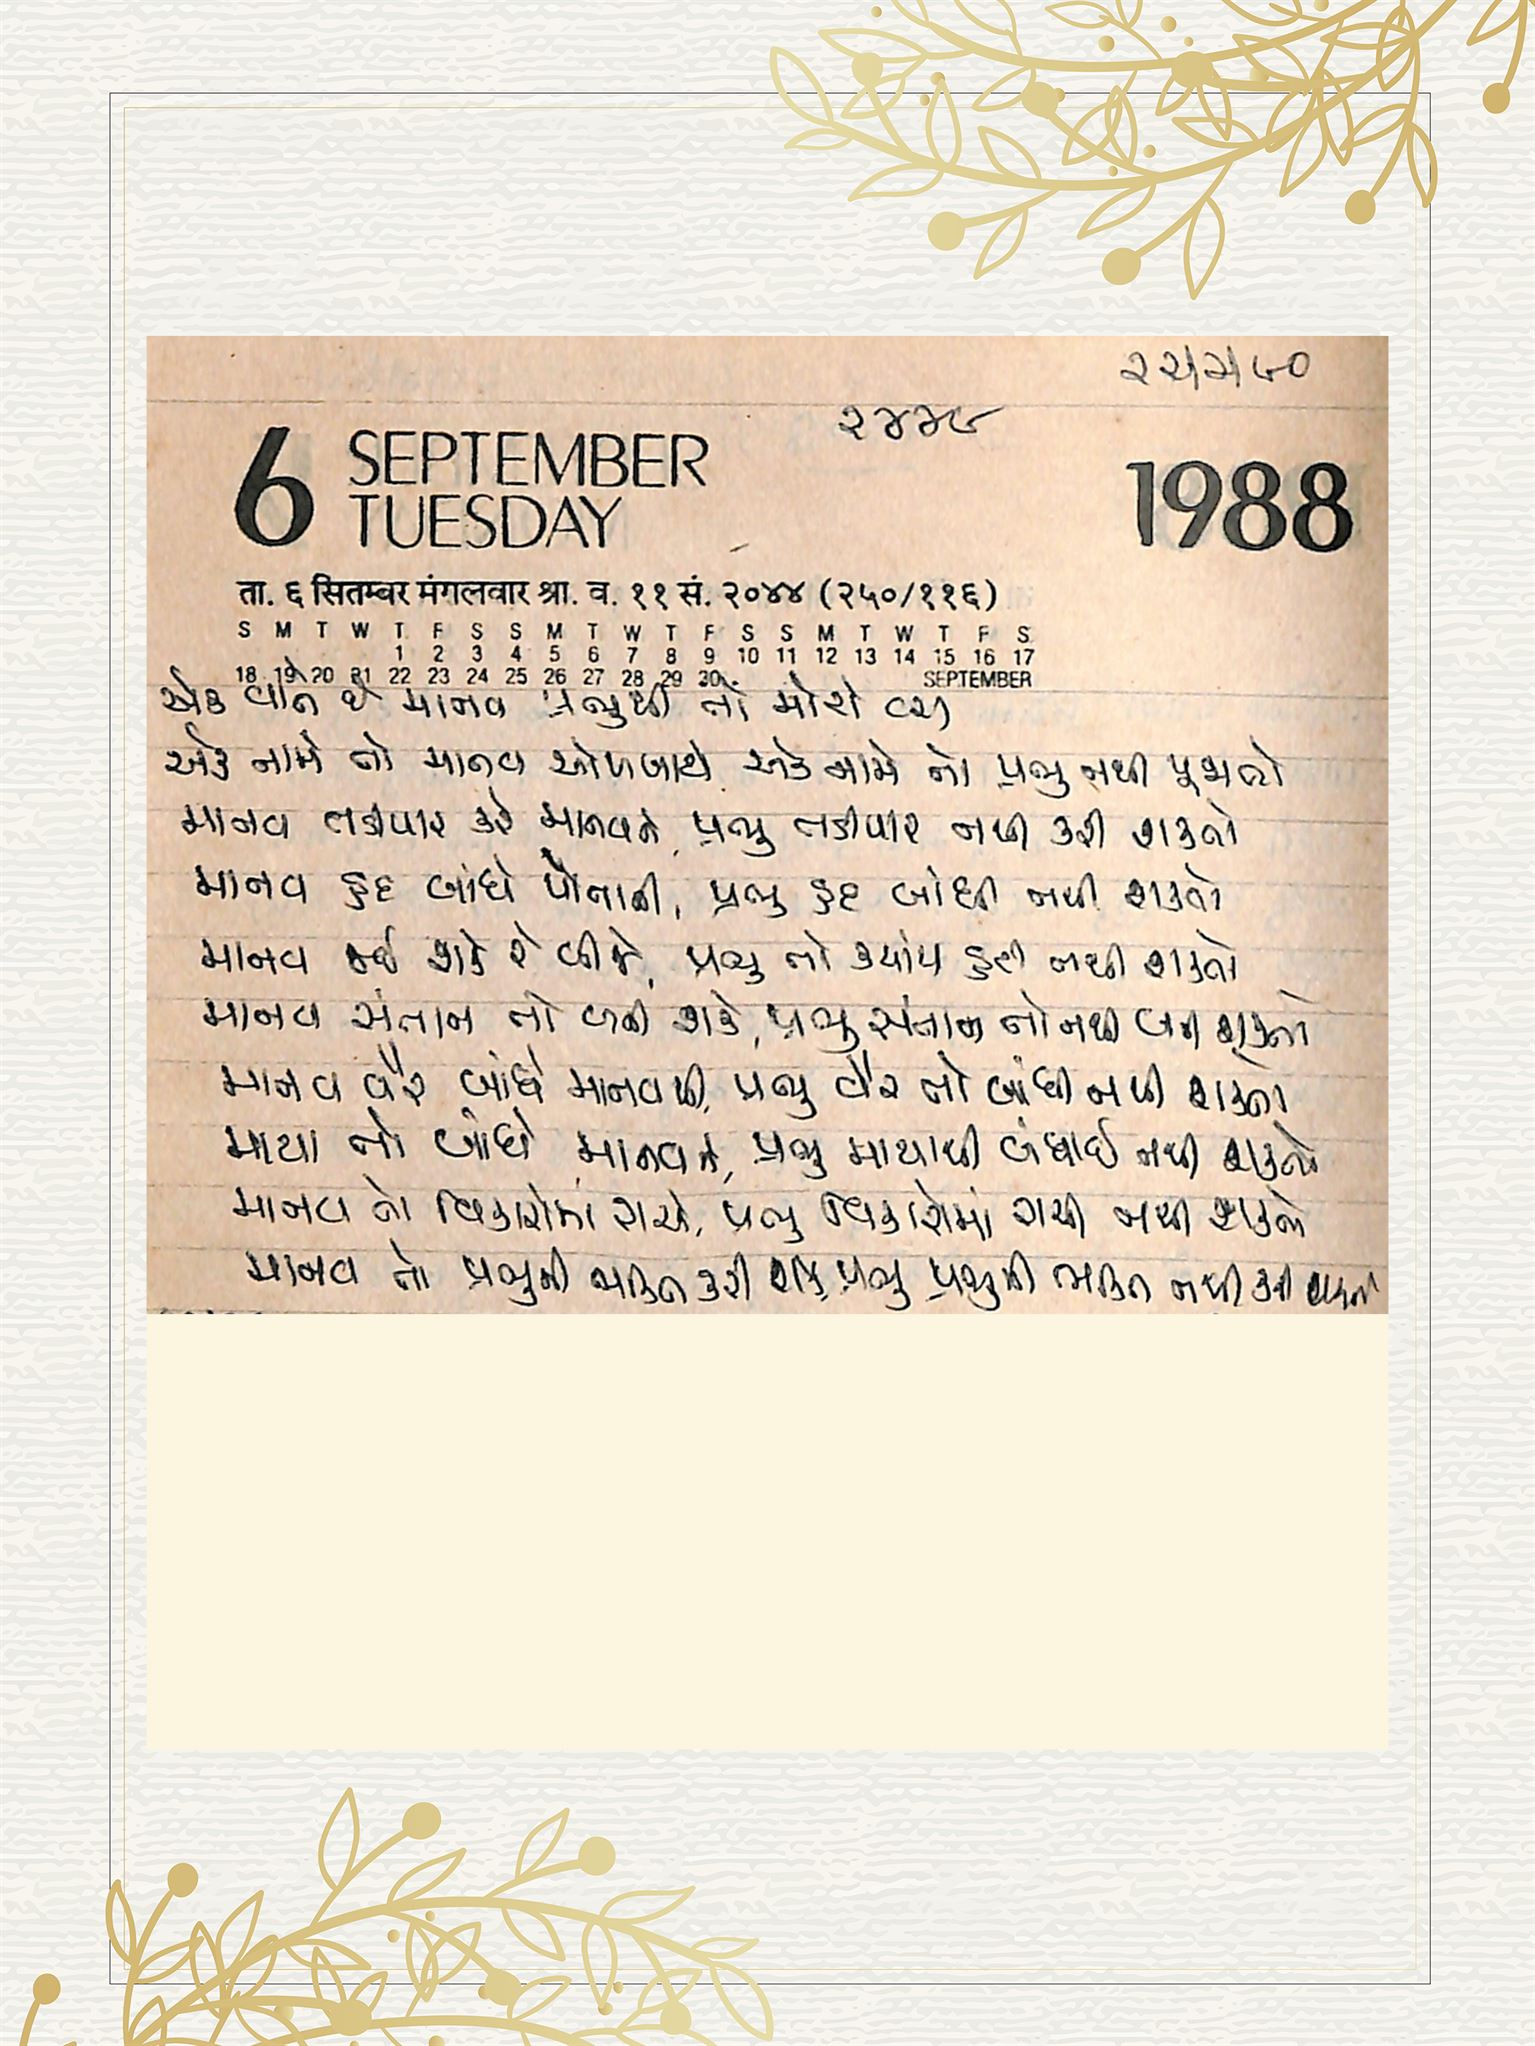 ૨૨/૨/૯૦
૨૪૪૯
6 SEPTEMBER
TUESDAY
1988
ता. ६ सितम्बर मंगलवार श्रा. व. ११ सं. २०४४ (२५०/११६)
S M T W T F S S M T W T F S S M T W T F S
1 2 3 4 5 6 7 8 9 10 11 12 13 14 15 16 17
18 19 20 21 22 23 24 25 26 27 28 29 30 SEPTEMBER
એક વાતે છે માનવ પ્રભુથી તો મોટો
એક નામે તો માનવ ઓળખાયે એક નામે તો પ્રભુ નથી પૂજાતો
માનવ તડીપાર કરે માનવને, પ્રભુ તડીપાર નથી કરી શકતો
માનવ હદ બાંધે પોતાની, પ્રભુ હદ બાંધી નથી શકતો
માનવ શકે રે બીજે, પ્રભુ તો ક્યાંય નથી શકતો
માનવ સંતાન તો બની શકે, પ્રભુ સંતાન તો નથી બની શકતો
માનવ વૈર બાંધે માનવથી, પ્રભુ વૈર તો બાંધી નથી શકતો
માયા તો બાંધે માનવને, પ્રભુ માયાથી બંધાઈ નથી શકતો
માનવ તો વિકારોમાં રાચે, પ્રભુ વિકારોમાં રાચી નથી શકતો
માનવ તો પ્રભુની ભક્તિ કરી શકે, પ્રભુ પ્રભુની ભક્તિ નથી કરી શકતો